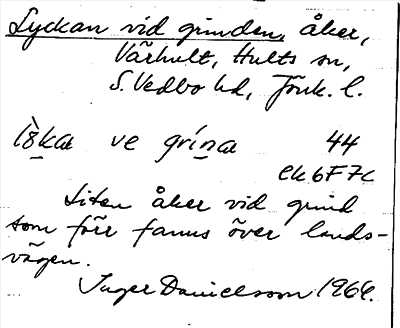 Lyckan vid grinden, åker,
Vårhult, Hults sn,
S. Vedbo hd, Jönk. l.
ve grína 44
ek 6F7c
Liten åker vid grind
som förr fanns över lands-
vägen.
Inger Danielsson 1964.